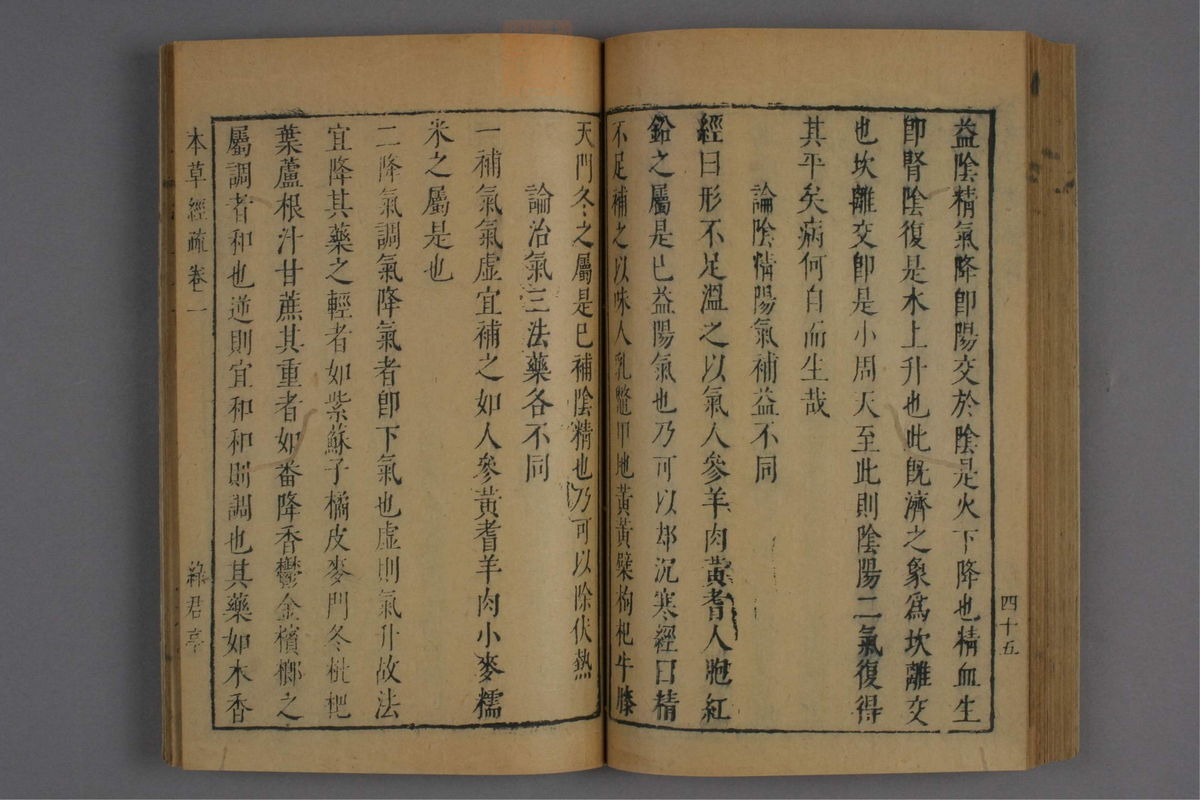 四十五
益陰精氣降卽陽交於陰是火下降也精血生
卽腎陰復是水上升也此旣濟之象爲坎離交
也坎離交卽是小周天至此則陰陽二氣復得
其平矣病何自而生哉
論陰精陽氣補益不同
經曰形不足溫之以氣人參羊肉黃耆人胞紅
鉛之屬是已益陽氣也乃可以却沉寒經曰精
不足補之以味人乳鼈甲地黃黃檗枸杞牛膝
天門冬之屬是已補陰精也乃可以除伏熱
論治氣三法藥各不同
一補氣氣虛宜補之如人參黃耆羊肉小麥糯
米之屬是也
二降氣調氣降氣者卽下氣也虛則氣升故法
宜降其藥之輕者如紫蘇子橘皮麥門冬枇杷
葉蘆根汁甘蔗其重者如番降香鬱金檳榔之
屬調者和也逆則宜和和則調也其藥如木香
本草經疏 卷一 綠君亭